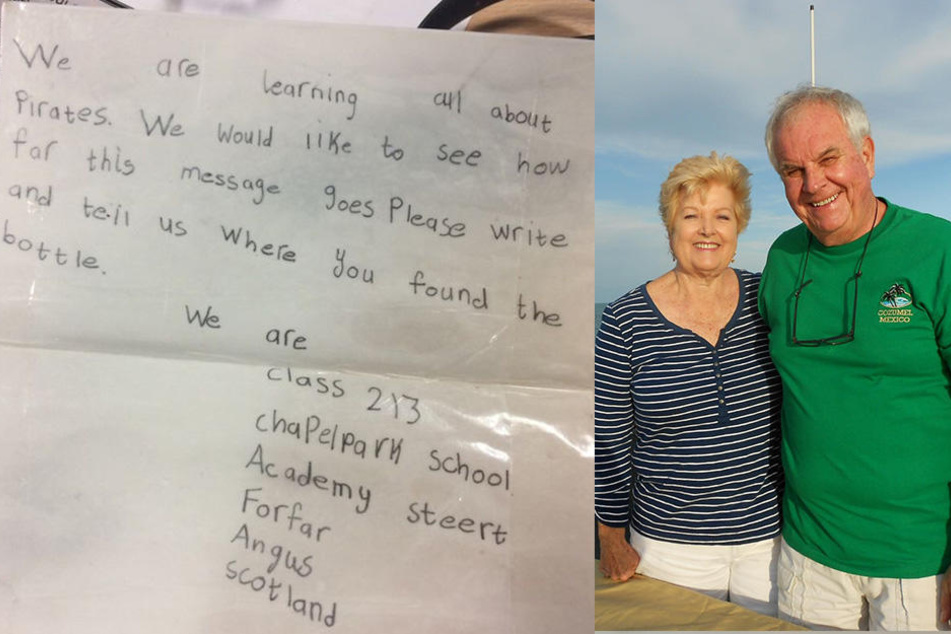 We are learning all about
Pirates. We would like to see how
far this message goes Please write
and tell us where you found the
bottle.
We are
class 2/3
chaPelpark school
Academy steert
Forfar
Angus
scotland
COZUMEL
MEXICO